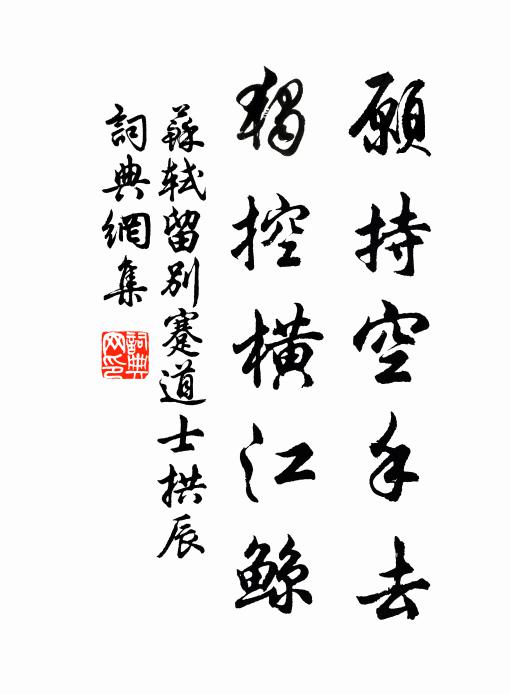 願持空手去
獨控橫江鯨
蘇軾留別蹇道士拱辰
詞典網集
詞典網印